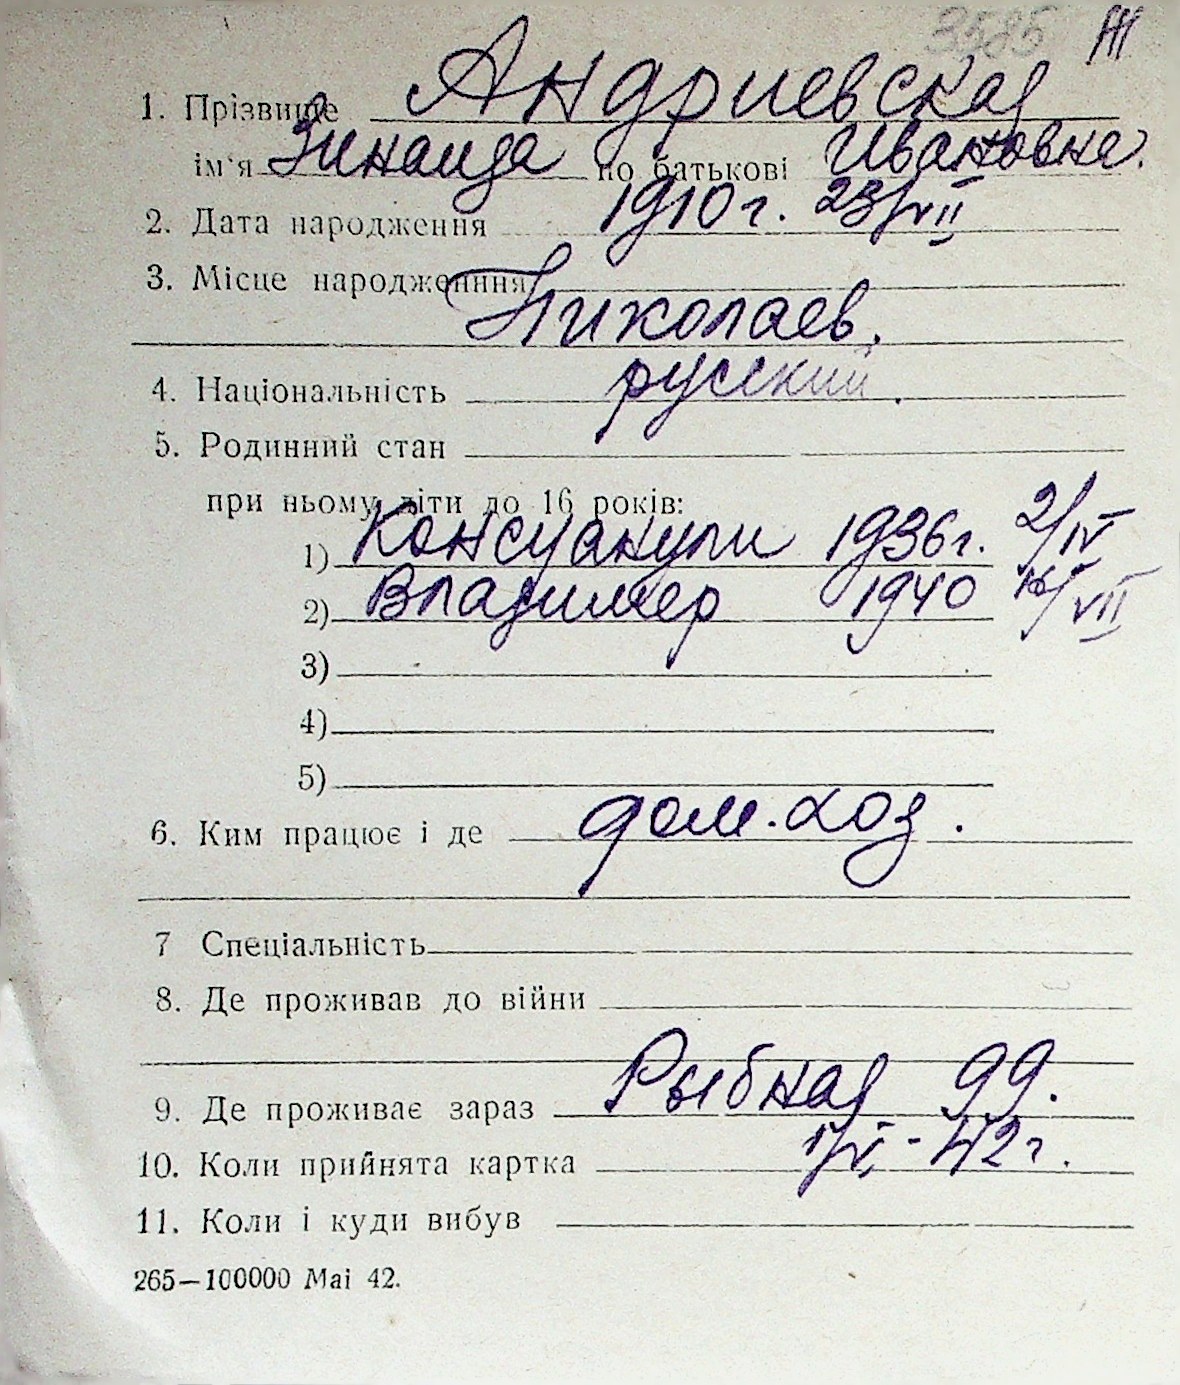 3585 III
1. Прізвище Андриевская
ім'я Зинаида по батькові Ивановна.
2. Дата народження 1910 г. 23/VII
3. Місце народженння
Николаев.
4. Національність русский.
5. Родинний стан
при ньому діти до 16 років:
1) 1936 г. 2/IV
2) Владимер 1940 16/VII
3)
4)
5)
6. Ким працює і де дом. хоз.
7 Спеціальність
8. Де проживав до війни
9. Де проживає зараз Рыбная 99.
10. Коли прийнята картка - 42 г.
11. Коли і куди вибув
265—100000 Mai 42.